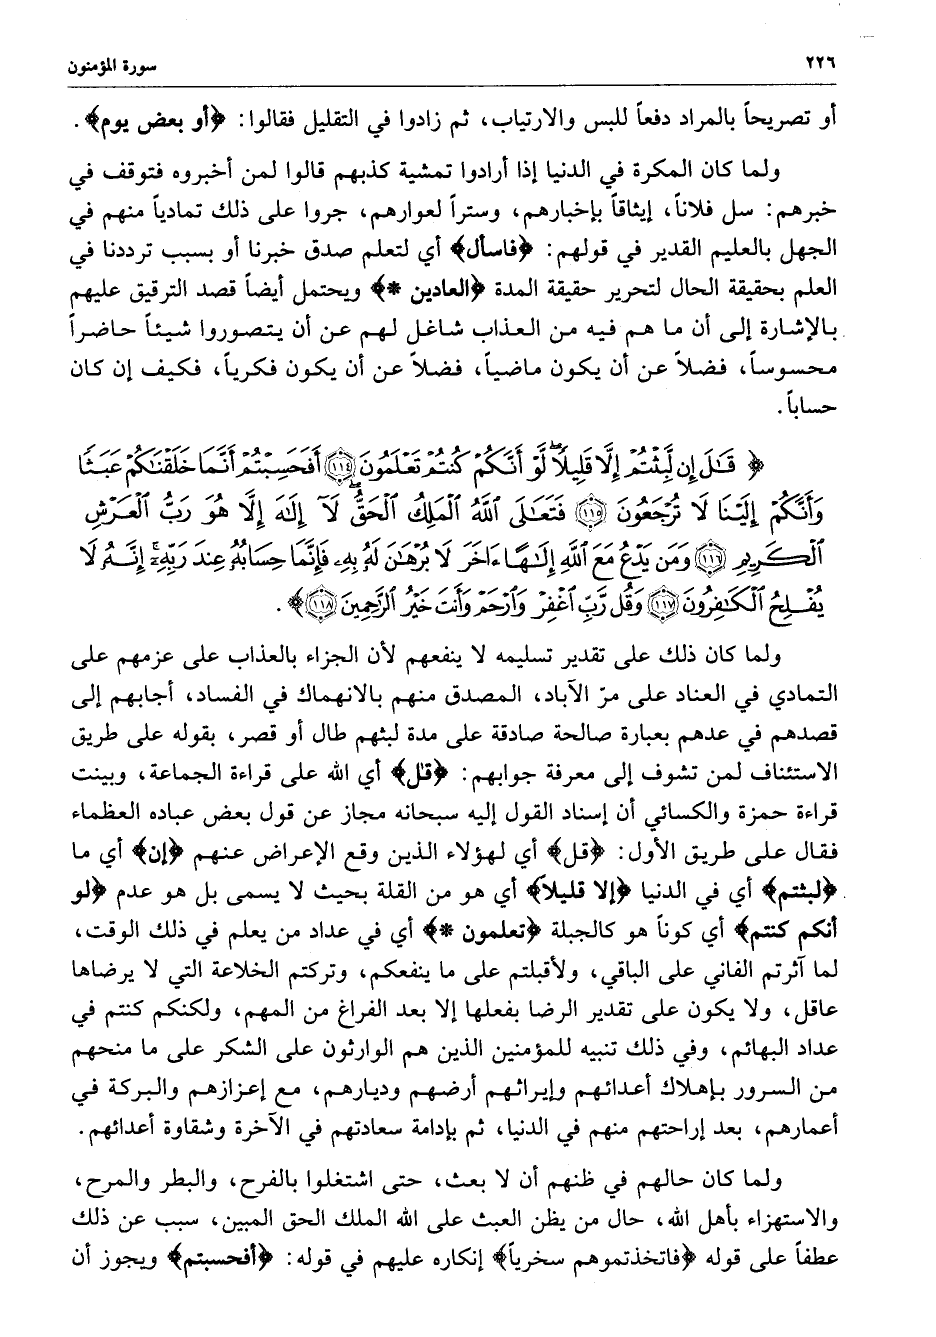 ٢٢٦
سورة المؤمنون
أو تصريحاً بالمراد دفعاً للبس والارتياب، ثم زادوا في التقليل فقالوا: ﴿أو بعض يوم﴾.
ولما كان المكرة في الدنيا إذا أرادوا تمشية كذبهم قالوا لمن أخبروه فتوقف في
خبرهم: سل فلاناً، إيثاقاً بإخبارهم، وستراً لعوارهم، جروا على ذلك تمادياً منهم في
الجهل بالعليم القدير في قولهم: ﴿فاسأل﴾ أي لتعلم صدق خبرنا أو بسبب ترددنا في
العلم بحقيقة الحال لتحرير حقيقة المدة ﴿العادين *﴾ ويحتمل أيضاً قصد الترقيق عليهم
بالإشارة إلى أن ما هم فيه من العذاب شاغل لهم عن أن يتصوروا شيئاً حاضراً
محسوساً، فضلاً عن أن يكون ماضياً، فضلاً عن أن يكون فكرياً، فكيف إن كان
حساباً.
﴿ قَـٰلَ إِن لَّبِثْتُمْ إِلَّا قَلِيلًا ۖ لَّوْ أَنَّكُمْ كُنتُمْ تَعْلَمُونَ ١١٤ أَفَحَسِبْتُمْ أَنَّمَا خَلَقْنَـٰكُمْ عَبَثًا
وَأَنَّكُمْ إِلَيْنَا لَا تُرْجَعُونَ ١١٥ فَتَعَـٰلَى ٱللَّهُ ٱلْمَلِكُ ٱلْحَقُّ ۖ لَآ إِلَـٰهَ إِلَّا هُوَ رَبُّ ٱلْعَرْشِ
ٱلْكَرِيمِ ١١٦ وَمَن يَدْعُ مَعَ ٱللَّهِ إِلَـٰهًا ءَاخَرَ لَا بُرْهَـٰنَ لَهُۥ بِهِۦ فَإِنَّمَا حِسَابُهُۥ عِندَ رَبِّهِۦٓ ۚ إِنَّهُۥ لَا
يُفْلِحُ ٱلْكَـٰفِرُونَ ١١٧ وَقُل رَّبِّ ٱغْفِرْ وَٱرْحَمْ وَأَنتَ خَيْرُ ٱلرَّٰحِمِينَ ١١٨ ﴾.
ولما كان ذلك على تقدير تسليمه لا ينفعهم لأن الجزاء بالعذاب على عزمهم على
التمادي في العناد على مرّ الآباد، المصدق منهم بالانهماك في الفساد، أجابهم إلى
قصدهم في عدهم بعبارة صالحة صادقة على مدة لبثهم طال أو قصر، بقوله على طريق
الاستئناف لمن تشوف إلى معرفة جوابهم: ﴿قٰل﴾ أي الله على قراءة الجماعة، وبينت
قراءة حمزة والكسائي أن إسناد القول إليه سبحانه مجاز عن قول بعض عباده العظماء
فقال على طريق الأول: ﴿قل﴾ أي لهؤلاء الذين وقع الإعراض عنهم ﴿إن﴾ أي ما
﴿لبثتم﴾ أي في الدنيا ﴿إلا قليلاً﴾ أي هو من القلة بحيث لا يسمى بل هو عدم ﴿لو
أنكم كنتم﴾ أي كوناً هو كالجبلة ﴿تعلمون *﴾ أي في عداد من يعلم في ذلك الوقت،
لما آثرتم الفاني على الباقي، ولأقبلتم على ما ينفعكم، وتركتم الخلاعة التي لا يرضاها
عاقل، ولا يكون على تقدير الرضا بفعلها إلا بعد الفراغ من المهم، ولكنكم كنتم في
عداد البهائم، وفي ذلك تنبيه للمؤمنين الذين هم الوارثون على الشكر على ما منحهم
من السرور بإهلاك أعدائهم وإيراثهم أرضهم وديارهم، مع إعزازهم والبركة في
أعمارهم، بعد إراحتهم منهم في الدنيا، ثم بإدامة سعادتهم في الآخرة وشقاوة أعدائهم.
ولما كان حالهم في ظنهم أن لا بعث، حتى اشتغلوا بالفرح، والبطر والمرح،
والاستهزاء بأهل الله، حال من يظن العبث على الله الملك الحق المبين، سبب عن ذلك
عطفاً على قوله ﴿فاتخذتموهم سخرياً﴾ إنكاره عليهم في قوله: ﴿أفحسبتم﴾ ويجوز أن